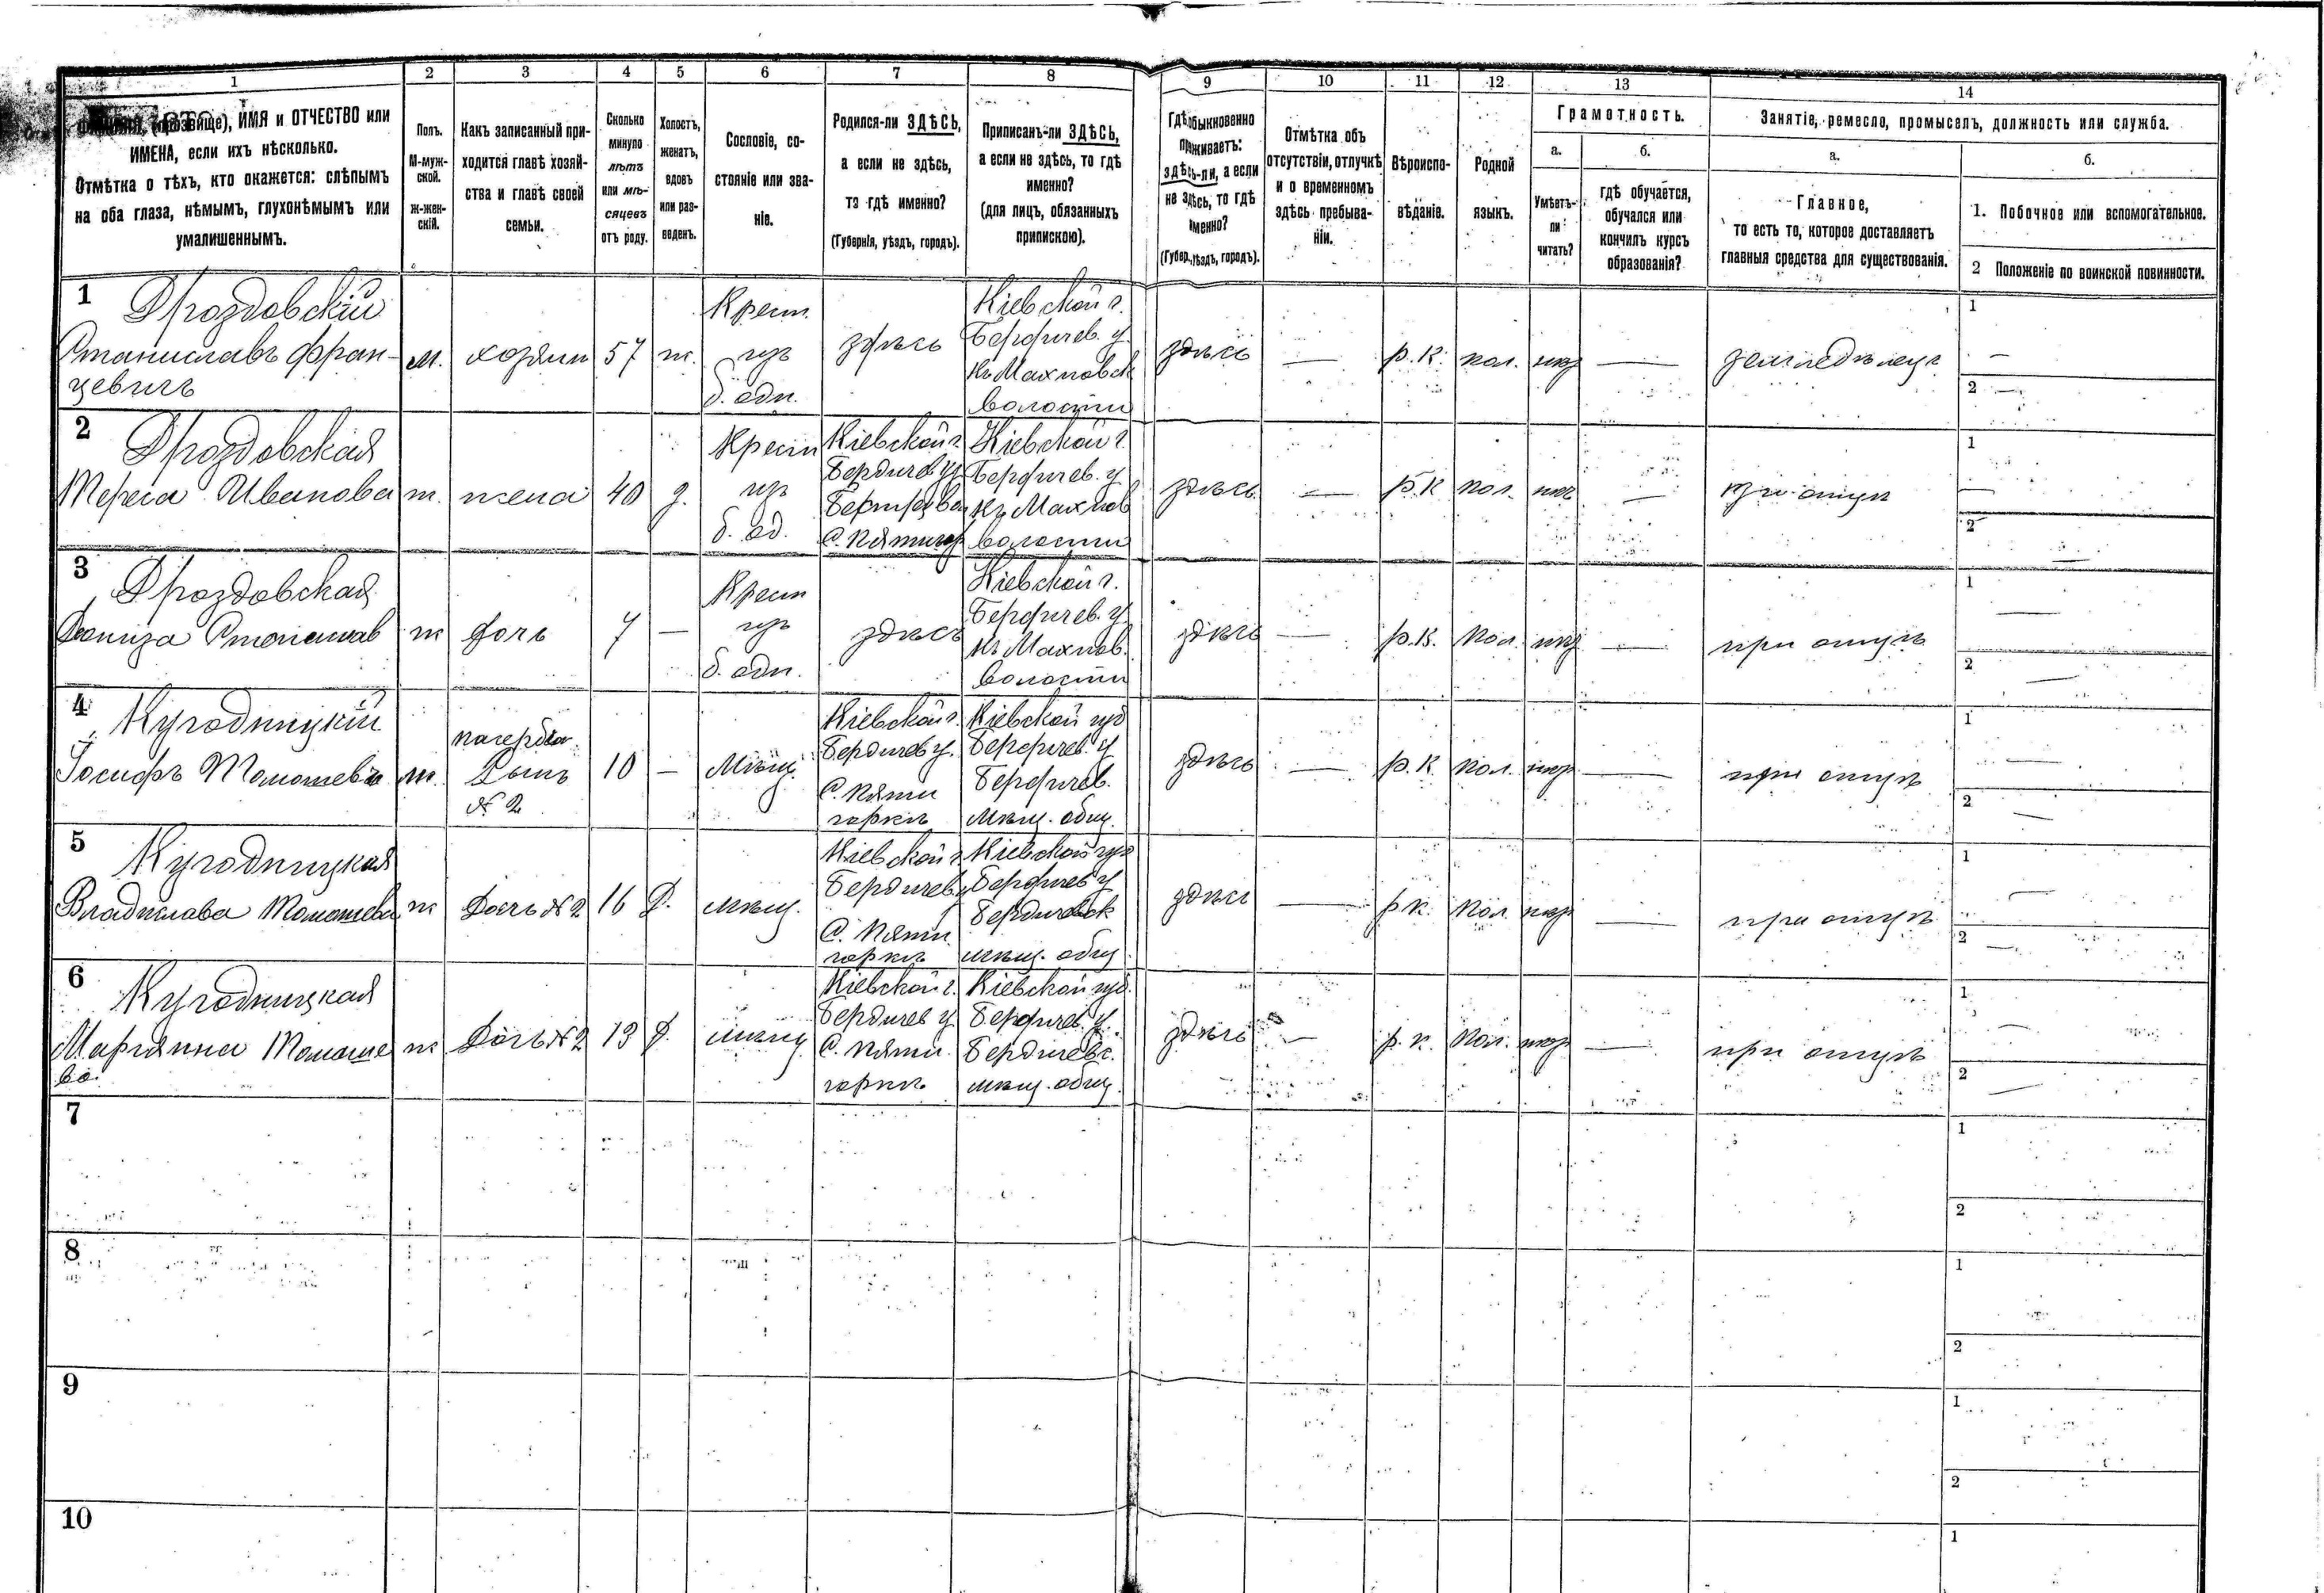 1 2 3 4 5 6 7 8 9 10 11 12 13 14
(прозвище), ИМЯ и ОТЧЕСТВО или
ИМЕНА, если ихъ нѣсколько.
Отмѣтка о тѣхъ, кто окажется: слѣпымъ
на оба глаза, нѣмымъ, глухонѣмымъ или
умалишеннымъ.
Полъ.
М-муж-
ской.
ж-жен-
скій.
Какъ записанный при-
ходится главѣ хозяй-
ства и главѣ своей
семьи.
Сколько
минуло
лѣтъ
или мѣ-
сяцевъ
отъ роду.
Холостъ,
женатъ,
вдовъ
или раз-
веденъ.
Сословіе, со-
стояніе или зва-
ніе.
Родился-ли ЗДѢСЬ,
а если не здѣсь,
то гдѣ именно?
(Губернія, уѣздъ, городъ).
Приписанъ-ли ЗДѢСЬ,
а если не здѣсь, то гдѣ
именно?
(для лицъ, обязанныхъ
припискою).
Гдѣ обыкновенно
проживаетъ:
здѣсь-ли, а если
не здѣсь, то гдѣ
именно?
(Губер., уѣздъ, городъ).
Отмѣтка объ
отсутствіи, отлучкѣ
и о временномъ
здѣсь пребыва-
ніи.
Вѣроиспо-
вѣданіе.
Родной
языкъ.
Грамотность.
а.
Умѣетъ-
ли
читать?
б.
гдѣ обучается,
обучался или
кончилъ курсъ
образованія?
Занятіе, ремесло, промыселъ, должность или служба.
а.
Главное,
то есть то, которое доставляетъ
главныя средства для существованія.
б.
1. Побочное или вспомогательное.
2 Положеніе по воинской повинности.
1 Дроздовскій
Станиславъ Фран-
цевичъ
м. хозяин 57 ж.
Крест.
из
б. одн.
здѣсь
Кіевской г.
Бердичев. у.
къ Махновск
волости
здѣсь — р.к. пол. — земледѣлец
1 —
2 —
2 Дроздовская
Тереса Иванова
ж. жена 40 з.
Крест
из
б. од.
Кіевской г.
Бердичев у
С. Пятигор
Кіевской г.
Бердичев. у
къ Махнов
волости
здѣсь — р.к пол. —
1 —
2 —
3 Дроздовская
Станислав
ж дочь 7 —
Крест
из
б. одн.
здѣсь
Кіевской г.
Бердичев. у
къ Махнов.
волости
здѣсь — р.к. пол. — при отцѣ
1 —
2 —
4 Кугодницкій
Іосифъ Томашева
м.
Сынъ
№ 2
10 — Мѣщ.
Кіевской г.
Бердичев у.
С. Пяти
горкѣ
Кіевской губ
Бердичев. у
Бердичев.
мѣщ. общ.
здѣсь — р.к. пол. — при отцѣ
1 —
2 —
5 Кугодницкая
Владислава Томашева
ж Дочь №2 16 Д. мѣщ.
Кіевской г.
Бердичев у
С. Пяти
горкѣ
Кіевской губ
Бердичев у
Бердичевск
мѣщ. общ
здѣсь — р.к. пол. — при отцѣ
1 —
2 —
6 Кугодницкая
Марианна Томаше
ва.
ж Дочь №2 13 Д. мѣщ
Кіевской г.
Бердичев у
С. Пяти
горкѣ
Кіевской губ.
Бердичев. у.
Бердичевс.
мѣщ. общ.
здѣсь — р.к. пол. — при отцѣ
1 —
2 —
7 1
2
8 1
2
9 1
2
10 1